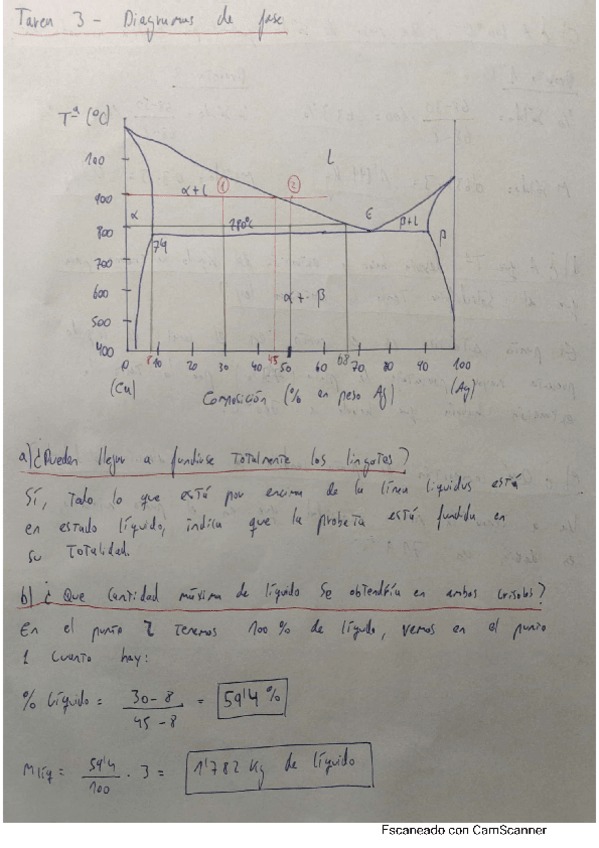 Tarea 3 - Diagramas de fase
Tª (ºC)
L
100
α+L
1
2
900
α
ε
β+L
780ºC
β
800
779
700
600
α+β
500
400
0 8 10 20 30 40 45 50 60 68 70 80 90 100
(Cu)
Composición (% en peso Ag)
(Ag)
a) ¿Pueden llegar a fundirse totalmente los lingotes?
Sí, todo lo que está por encima de la línea liquidus está
en estado líquido, indica que la probeta está fundida en
su totalidad.
b) ¿Que cantidad máxima de líquido se obtendría en ambos crisoles?
En el punto 2 tenemos 100% de líquido, vemos en el punto
1 cuanto hay:
% líquido = 30-8 / 45-8 = 59'4 %
Mliq = 59'4 / 100 · 3 = 1'782 Kg de líquido
Escaneado con CamScanner